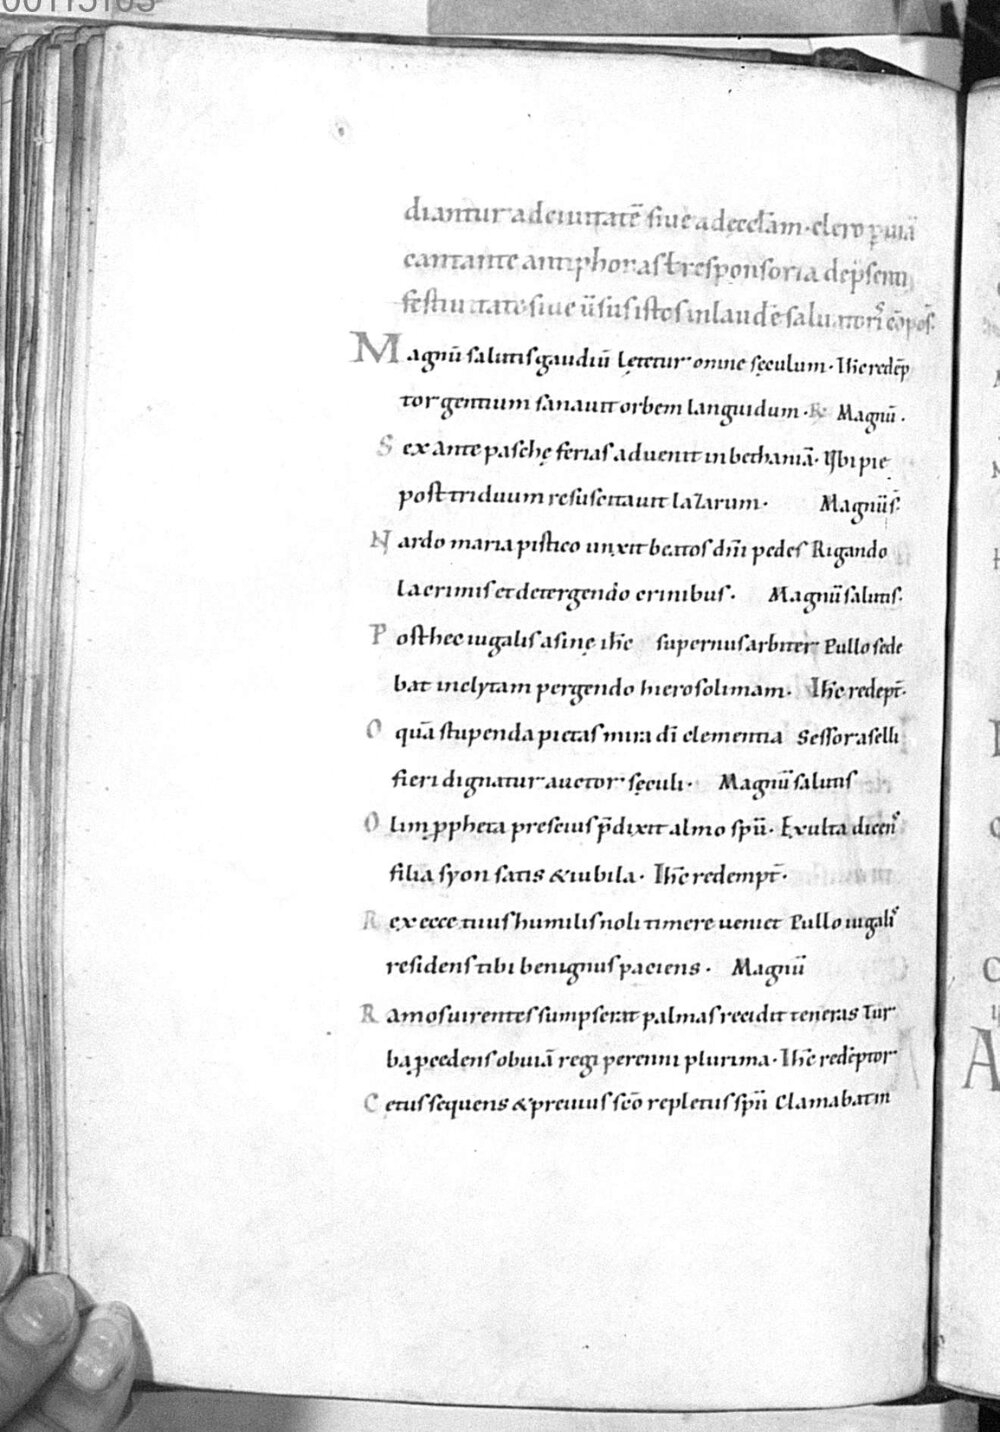 00115103
diantur ad ciuitatē siue ad ęccl̄am· clero p̱ uiā
cantante antiphonas ł responsoria de p̄senti
festiuitate siue ūsus istos in laudē saluatoris cōpos̄.
Magnū salutis gaudiū Lętetur omne sęculum· Ih̄c redēp
tor gentium sanauit orbem languidum· R̷ Magnū.
Sex ante paschę ferias aduenit in bethaniā· Vbi pie
post triduum resuscitauit lazarum· Magnū s̄.
Nardo maria pistico unxit beatos dn̄i pedes Rigando
lacrimis et detergendo crinibus· Magnū salutis.
Post hec iugalis asinę ih̄c supernus arbiter Pullo sede
bat inclytam pergendo hierosolimam· Ih̄c redept̄.
O quā stupenda pietas mira dī clementia Sessor aselli
fieri dignatur auctor sęculi· Magnū salutis
Olim ꝓpheta prescius p̄dixit almo spū· Exulta dicens
filia syon satis & iubila· Ih̄c redempt̄.
Rex ecce tuus humilis noli timere ueniet Pullo iugalis
residens tibi benignus paciens· Magnū
Ramos uirentes sumpserat palmas recidit teneras Tur
ba ꝓcedens obuiā regi perenni plurima· Ih̄c redēptor
Cetus sequens & preuius scō repletus spū Clamabat in